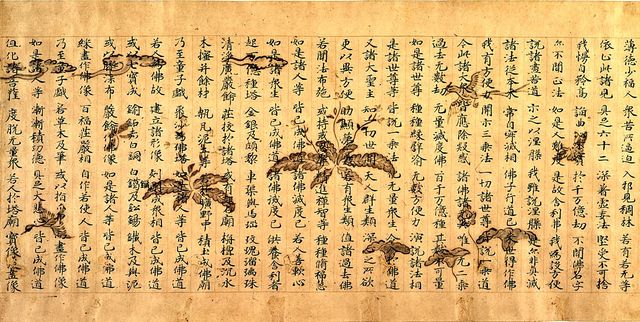 薄德少福人 衆苦所逼迫 入邪見稠林 若有若无等
依止此諸見 具足六十二 深著虛妄法 堅受不可捨
我慢自矜高 諂曲心不實 於千萬億劫 不聞佛名字
亦不聞正法 如是人難度 是故舍利弗 我爲設方便
說諸盡苦道 示之以涅槃 我雖說涅槃 是亦非真滅
諸法從本來 常自寂滅相 佛子行道已 來世得作佛
我有方便力 開示三乘法 一切諸世尊 皆說一乘道
今此諸大衆 皆應除疑惑 諸佛語无異 唯一无二乘
過去无數劫 无量滅度佛 百千万億種 其數不可量
如是諸世尊 種種緣譬喻 无數方便力 演說諸法相
是諸世尊等 皆說一乘法 化无量衆生 令入於佛道
又諸大聖主 知一切世間 天人群生類 深心之所欲
更以異方便 助顯第一義 若有衆生類 值諸過去佛
若聞法布施 或持戒忍辱 精進禪智等 種種脩福慧
如是諸人等 皆已成佛道 諸佛滅度已 若人善軟心
如是諸衆生 皆已成佛道 諸佛滅度已 供養舍利者
起万億種塔 金銀及頗梨 車𤦲與馬瑙 玫瑰琉璃珠
清淨廣嚴飾 莊校於諸塔 或有起石廟 栴檀及沉水
木櫁并餘材 塼瓦泥土等 若於曠野中 積土成佛廟
乃至童子戲 聚沙爲佛塔 如是諸人等 皆已成佛道
若人爲佛故 建立諸形像 刻彫成衆相 皆已成佛道
或以七寶成 鍮石赤白銅 白鑞及鉛錫 鐵木及與泥
或以膠漆布 嚴飾作佛像 如是諸人等 皆已成佛道
綵畫作佛像 百福莊嚴相 自作若使人 皆已成佛道
乃至童子戲 若草木及筆 或以指爪甲 而畫作佛像
如是諸人等 漸漸積功德 具足大悲心 皆已成佛道
但化諸菩薩 度脫无量衆 若人於塔廟 寶像及畫像